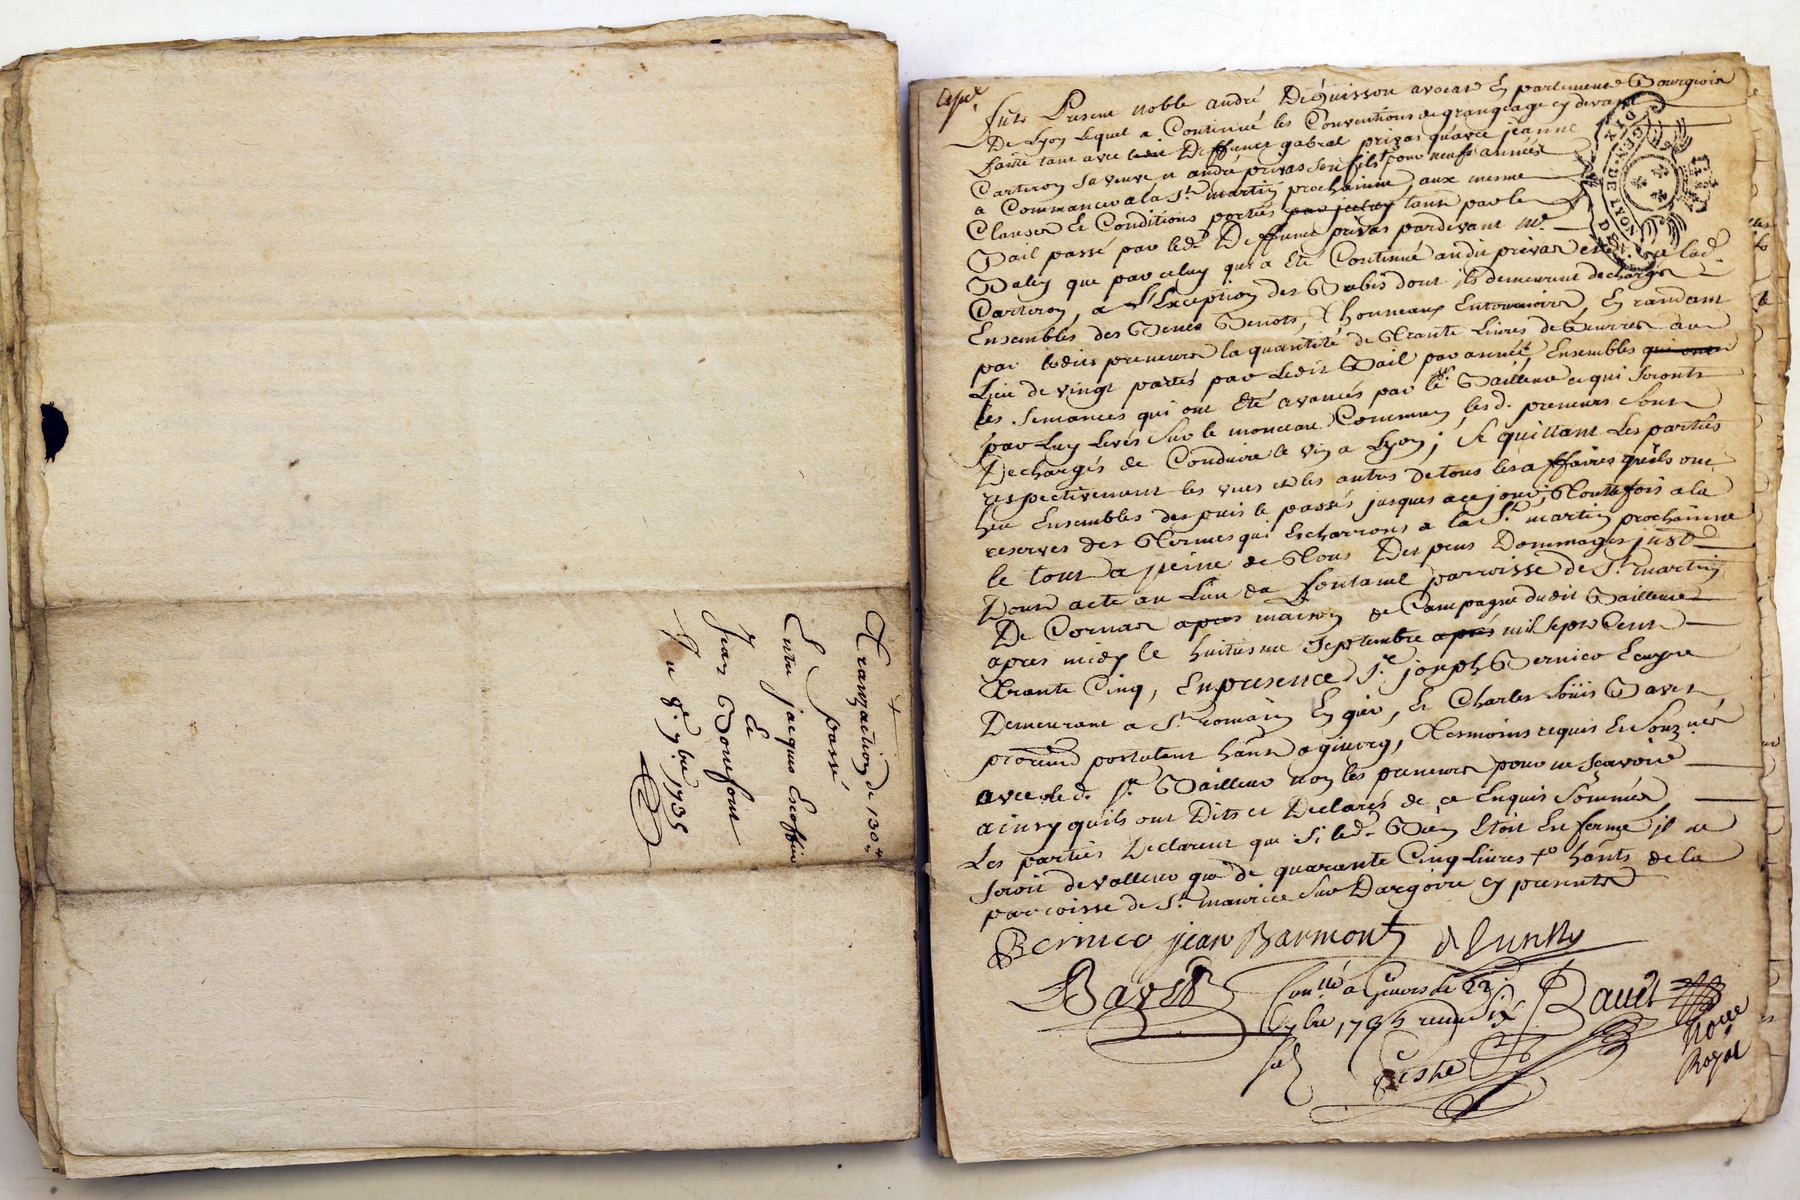 Tranzaction de 130 ₶
passé
Entre jacques Escoffier
Et
Jean Bonefont
Du 8e 7bre 1735
Expé
fut Present noble andré Deguisson avocat En parlement Bourgeois
De Lyon Lequel a Continué les Conventions de grangeage cy devant
faitte tant avec Deffunct gabral privas qu'avec jeanne
Carteron Sa veuve et andré privas Son fils pour neufs années
a Commancer a la St martin prochainne aux mesme
Clauses Et Conditions portés tant par le
Bail passé par led. Deffunct privas pardevant Me
Baley que par celuy qui a Eté Continué audit privas et a lad.
Carteron, a L'Exception des Babis dont ils demeurent decharges
Ensembles des Benes Benots, Entonnoirs, En randant
par lesdits preneurs la quantité de Trante Livres de Beurres au
Lieu de vingt portés par Ledit Bail par année, Ensembles
les Semances qui ont Eté avancés par le Sr Bailleur ce qui Seronts
par Luy Levés Sur le monceau Commun, lesd. preneurs Sont
Dechargés de Conduire le vin a Lyon; Se quittant Les partiés
respectivement les unes et les autres de tous les affaires qu'ils ont
heu Ensembles despuis le passés jusques a ce jour, Toutte fois a la
reserves des Termes qui Escharrons a la St martin prochainne
le tout a peine de Tous Despens Dommages
Dont acte au Lieu da fontanel parroisse de St martin
De Cornas maison de Campagne dudit Bailleur
apres midy le huitiesme Septembre mil Sept Cent
Trante Cinq, En presence Sr joseph Bernico Ecuyer
Demeurant a St romain En gier, Et Charles Loüis Bavet
portatent hant a givorg, Tesmoins requis Et Souznés
avec led. Sr Bailleur non les preneurs pour ne Scavoir
ainsy quils ont Dits et Declarés de ce Enquis Sommés
Les partiés Declarent que Si led. Bien Etoit En ferme jl ne
Seroit de valleur que de quarante Cinq Livres to hants de la
parroisse de St maurice Sur Dargoire cy presents
Bernico jean Barmont
Bavet
Conllé a Givors le 22
7bre 1735 receu Six
Sols
Bauet
Nore
Royal
DIX
GEN. DE
LYON